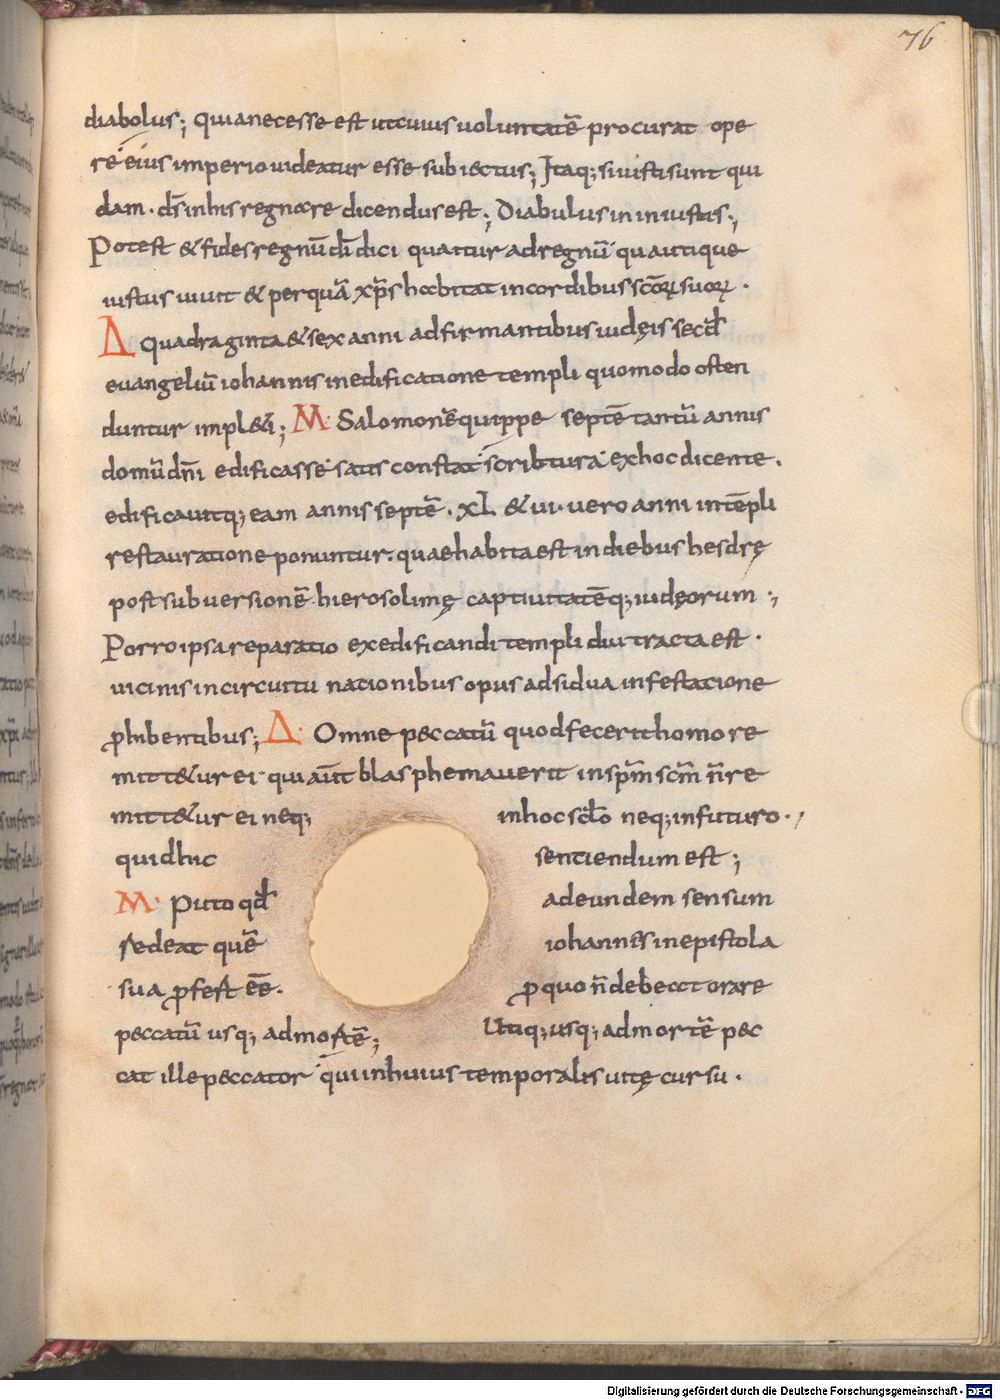 76
diabolus; quia necesse est ut cuius uoluntatē procurat ope
re eius imperio uideatur esse subiectus; Itaq; si iusti sunt qui
dam. d̄s in his regnare dicendus est; Diabulus in iniustis;
Potest & fides regnū dī dici qua itur ad regnū qua utique
iustus uiuit & per quā xp̄s habitat in cordibus scōꝝ suoꝝ.
Δ Quadraginta & sex anni adfirmantibus iudęis secđ
euangeliū iohannis in edificatione templi quomodo osten
duntur impl&i; M. Salomonē quippe septē tantū annis
domū dn̄i edificasse satis constat scribtura ex hoc dicente.
edificauitq; eam annis septē. XL & ui. uero anni in tēpli
restauratione ponuntur. quae habita est in diebus hesdrę
post subuersionē hierosolimę captiuitatēq; iudęorum;
Porro ipsa reparatio exedificandi templi diu tracta est.
uicinis in circuitu nacionibus opus adsidua infestacione
ꝓhibentibus; Δ. Omne peccatū quod fecerit homo re
mitt&ur ei qui aūt blasphemauerit in sp̄m scm̄ n̄ re
mitt&ur ei neq; in hoc scđo neq; in futuro.
quid hic sentiendum est;
M. Puto qđ ad eundem sensum
sedeat quē iohannis in epistola
sua ꝓfest eē. ꝓ quo n̄ debeat orare
peccatū usq; ad mortē; Utiq; usq; ad mortē pec
cat ille peccator qui in huius temporalis uitę cursu.
Digitalisierung gefördert durch die Deutsche Forschungsgemeinschaft - DFG